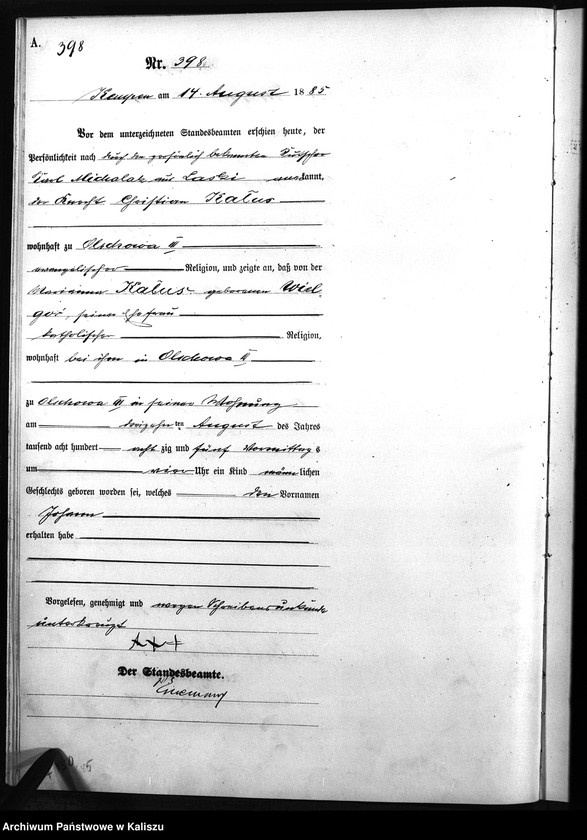 A. 398
Nr. 398.
Kempen am 14. August 1885
Vor dem unterzeichneten Standesbeamten erschien heute, der
Persönlichkeit nach durch den persönlich bekannten Kutscher
Karl Michalak aus Laski anerkannt,
der Knecht Christian Kałus
wohnhaft zu Olschowa III
evangelischer Religion, und zeigte an, daß von der
Marianna Kałus geborenen Wiel
gor, seiner Ehefrau
katholischer Religion,
wohnhaft bei ihm in Olschowa II
zu Olschowa III in seiner Wohnung
am dreizehnten August des Jahres
tausend acht hundert acht zig und fünf Vormittags
um vier Uhr ein Kind männlichen
Geschlechts geboren worden sei, welches den Vornamen
Johann
erhalten habe
Vorgelesen, genehmigt und wegen Schreibensunkunde
unterkreuzt
+++
Der Standesbeamte.
Archiwum Państwowe w Kaliszu